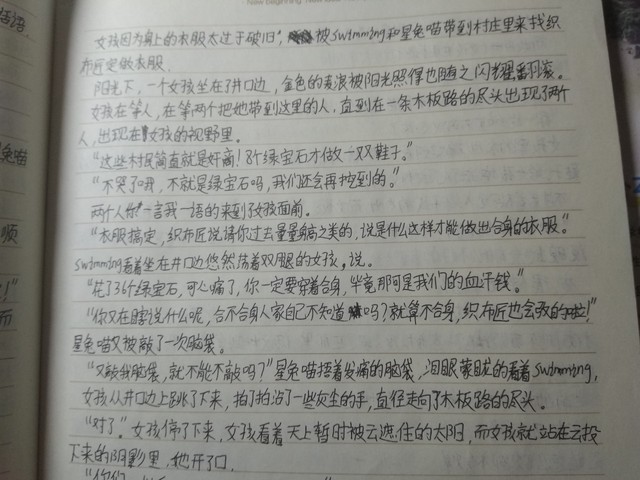 New beginning New
女孩因为身上的衣服太过于破旧，被swimming和星兔喵带到村庄里来找织
布匠定做衣服.
阳光下，一个女孩坐在了井口边，金色的麦浪被阳光照得也随之闪耀翻滚。
女孩在等人，在等两个把她带到这里的人，直到在一条木板路的尽头出现了两个
人，出现在女孩的视野里.
“这些村民简直就是奸商！8个绿宝石才做一双鞋子。”
“不哭了哦，不就是绿宝石吗，我们还会再挖到的。”
两个人你一言我一语的来到了女孩面前。
“衣服搞定，织布匠说请你过去量量身高之类的，说是什么这样才能做出合身的衣服。”
swimming看着坐在井口边悠然荡着双腿的女孩，说。
“花了36个绿宝石，可心痛了，你一定要穿着合身，毕竟那可是我们的血汗钱。”
“你又在瞎说什么呢，合不合身人家自己不知道吗？就算不合身，织布匠也会改的啦！”
星兔喵又被敲了一次脑袋。
“又敲我脑袋，就不能不敲吗？”星兔喵捂着发痛的脑袋，泪眼蒙眬的看着swimming，
女孩从井口边上跳了下来，拍了拍沾了一些灰尘的手，直径走向了木板路的尽头。
“对了。”女孩停了下来，女孩看着天上暂时被云遮住的太阳，而女孩就站在云投
下来的阴影里，她开了口，
“你们